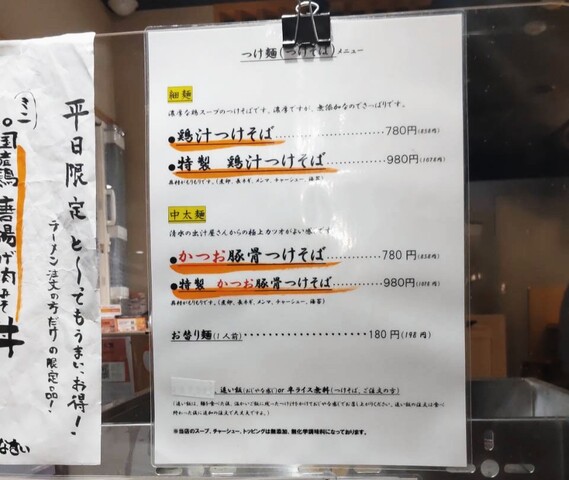 つけ麺(つけそば)メニュー
細麺
濃厚な鶏スープのつけそばです。濃厚ですが、無添加なのでさっぱりです。
●鶏汁つけそば……………………780円(858円)
●特製 鶏汁つけそば……………980円(1078円)
具材がもりもりです。(煮卵、長ネギ、メンマ、チャーシュー、海苔)
中太麺
清水の出汁屋さんからの極上カツオがよい感じです。
●かつお豚骨つけそば……………780円(858円)
●特製 かつお豚骨つけそば………980円(1078円)
具材がもりもりです。(煮卵、長ネギ、メンマ、チャーシュー、海苔)
お替り麺(1人前)……………………180円(198円)
追い飯(おじやな感じ)or 半ライス無料(つけそば、ご注文の方)
※当店のスープ、チャーシュー、トッピングは無添加、無化学調味料になっております。
平日限定 と〜ってもうまい、お得!
ラーメン注文の方だけの限定品!
(ミニ)
国産鶏 唐揚げ肉みそ丼
なさい